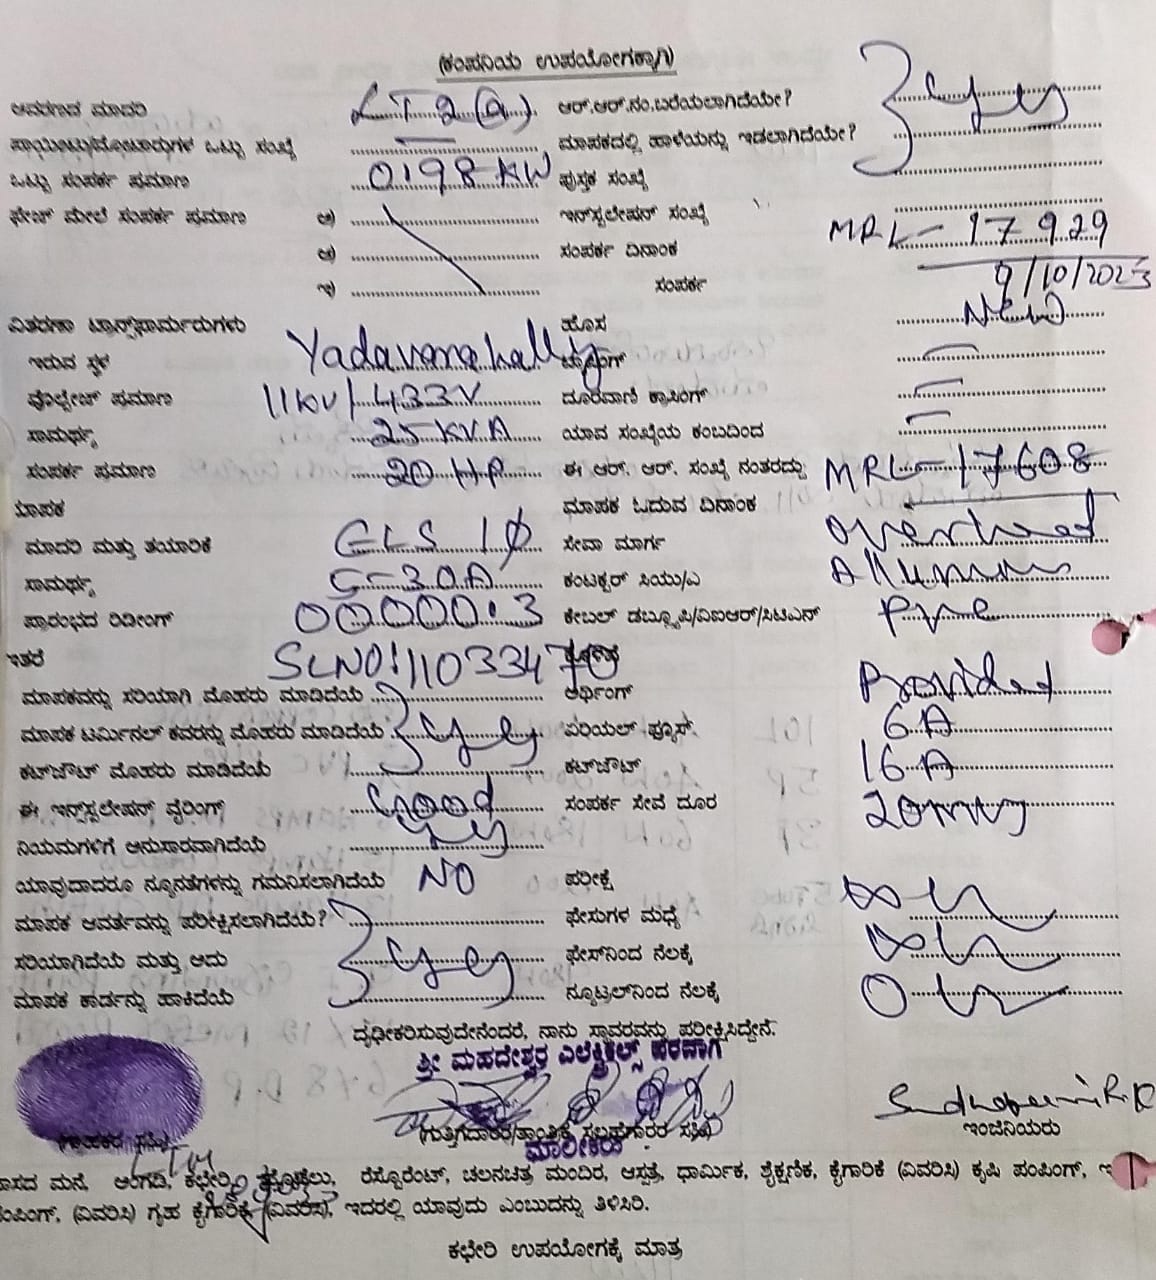 (ಕಂಪನಿಯ ಉಪಯೋಗಕ್ಕಾಗಿ)
ಆವರಣದ ಮಾದರಿ LT-2(a) ಆರ್.ಆರ್.ನಂ.ಬರೆಯಲಾಗಿದೆಯೇ? yes
ಪಾಯಿಂಟು/ಮೋಟಾರುಗಳ ಒಟ್ಟು ಸಂಖ್ಯೆ — ಮಾಪಕದಲ್ಲಿ ಹಾಳೆಯನ್ನು ಇಡಲಾಗಿದೆಯೇ?
ಒಟ್ಟು ಸಂಪರ್ಕ ಪ್ರಮಾಣ 0.98 KW ಪುಸ್ತಕ ಸಂಖ್ಯೆ
ಫೇಸ್ ಮೇಲೆ ಸಂಪರ್ಕ ಪ್ರಮಾಣ ಅ) ಇನ್‌ಸ್ಟಲೇಷನ್ ಸಂಖ್ಯೆ MRL-17929
ಆ) ಸಂಪರ್ಕ ದಿನಾಂಕ 9/10/2023
ಇ) ಸಂಪರ್ಕ
ವಿತರಣಾ ಟ್ರಾನ್ಸ್‌ಫಾರ್ಮರುಗಳು ಹೊಸ New
ಇರುವ ಸ್ಥಳ Yadavanahally ಟ್ಯಾಪಿಂಗ್ —
ವೊಲ್ಟೇಜ್ ಪ್ರಮಾಣ 11KV/433V ದೂರವಾಣಿ ಕ್ರಾಸಿಂಗ್ —
ಸಾಮರ್ಥ್ಯ 25 KVA ಯಾವ ಸಂಖ್ಯೆಯ ಕಂಬದಿಂದ —
ಸಂಪರ್ಕ ಪ್ರಮಾಣ 20 HP ಈ ಆರ್. ಆರ್. ಸಂಖ್ಯೆ ನಂತರದ್ದು MRL-17608
ಮಾಪಕ ಮಾಪಕ ಓದುವ ದಿನಾಂಕ
ಮಾದರಿ ಮತ್ತು ತಯಾರಿಕೆ 1ϕ ಸೇವಾ ಮಾರ್ಗ overhead
ಸಾಮರ್ಥ್ಯ 5-30A ಕಂಟಕ್ಟರ್ ಸಿಯು/ಎ
ಪ್ರಾರಂಭದ ರಿಡೀಂಗ್ 00000.3 ಕೇಬಲ್ ಡಬ್ಲ್ಯೂಪಿ/ವಿಐಆರ್/ಸಿಟಿಎಸ್
ಇತರೆ SLNO:11033470
ಮಾಪಕವನ್ನು ಸರಿಯಾಗಿ ಮೊಹರು ಮಾಡಿದೆಯೆ ಅರ್ಥಿಂಗ್ Provided
ಮಾಪಕ ಟರ್ಮಿನಲ್ ಕವರನ್ನು ಮೊಹರು ಮಾಡಿದೆಯೆ yes ಏರಿಯಲ್ ಫ್ಯೂಸ್. 6A
ಕಟ್‌ಔಟ್ ಮೊಹರು ಮಾಡಿದೆಯೆ ಕಟ್‌ಔಟ್ 16A
ಈ ಇನ್‌ಸ್ಟಲೇಷನ್ ವೈರಿಂಗ್ Good ಸಂಪರ್ಕ ಸೇವೆ ದೂರ 20mtrs
ನಿಯಮಗಳಿಗೆ ಅನುಸಾರವಾಗಿದೆಯೆ yes
ಯಾವುದಾದರೂ ನ್ಯೂನತೆಗಳನ್ನು ಗಮನಿಸಲಾಗಿದೆಯೆ NO ಪರೀಕ್ಷೆ
ಮಾಪಕ ಆವರ್ತವನ್ನು ಪರೀಕ್ಷಿಸಲಾಗಿದೆಯೆ? ಫೇಸುಗಳ ಮಧ್ಯೆ
ಸರಿಯಾಗಿದೆಯೆ ಮತ್ತು ಅದು yes ಫೇಸ್‌ನಿಂದ ನೆಲಕ್ಕೆ
ಮಾಪಕ ಕಾರ್ಡನ್ನು ಹಾಕಿದೆಯೆ ನ್ಯೂಟ್ರಲ್‌ನಿಂದ ನೆಲಕ್ಕೆ
ದೃಢೀಕರಿಸುವುದೇನೆಂದರೆ, ನಾನು ಸ್ಥಾವರವನ್ನು ಪರೀಕ್ಷಿಸಿದ್ದೇನೆ.
ಶ್ರೀ ಮಹದೇಶ್ವರ ಎಲೆಕ್ಟ್ರಿಕಲ್ಸ್
(ಗುತ್ತಿಗೆದಾರರ/ತಾಂತ್ರಿಕ ಸಲಹೆಗಾರರ ಸಹಿ) ಇಂಜಿನಿಯರು
ಮಾಲೀಕರು
LTM
ವಾಸದ ಮನೆ, ಅಂಗಡಿ, ಕಛೇರಿ, ಹೋಟೆಲು, ರೆಸ್ಟೋರೆಂಟ್, ಚಲನಚಿತ್ರ ಮಂದಿರ, ಆಸ್ಪತ್ರೆ, ಧಾರ್ಮಿಕ, ಶೈಕ್ಷಣಿಕ, ಕೈಗಾರಿಕೆ (ವಿವರಿಸಿ) ಕೃಷಿ ಪಂಪಿಂಗ್,
ಪಂಪಿಂಗ್, (ವಿವರಿಸಿ) ಗೃಹ ಕೈಗಾರಿಕೆ (ವಿವರಿಸಿ), ಇದರಲ್ಲಿ ಯಾವುದು ಎಂಬುದನ್ನು ತಿಳಿಸಿರಿ.
ಕಛೇರಿ ಉಪಯೋಗಕ್ಕೆ ಮಾತ್ರ